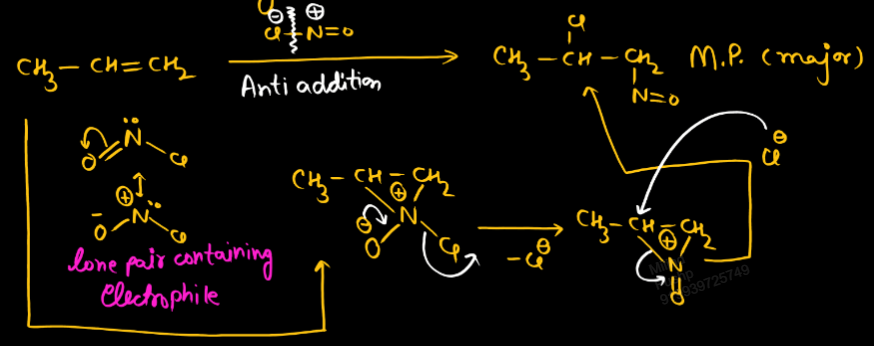 Cl
⊖ ⊕
Cl – N=O
CH₃ – CH=CH₂
Anti addition
Cl
CH₃ – CH – CH₂ M.P. (major)
N=O
O=N̈–Cl
⊕
⁻O–N̈–Cl
lone pair containing
Electrophile
CH₃ – CH – CH₂
⊕
N
⊖
O Cl
-Cl⊖
Cl⊖
CH₃ – CH – CH₂
⊕
N
O
939725749